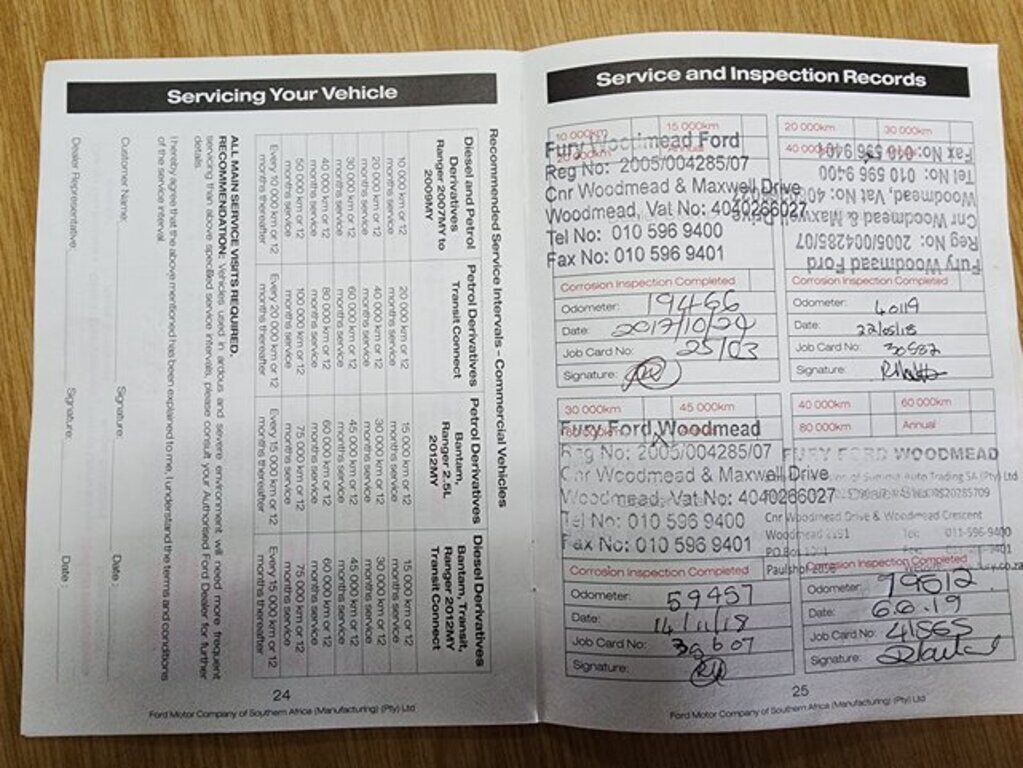 Servicing Your Vehicle
Recommended Service Intervals – Commercial Vehicles
Diesel and Petrol Derivatives Ranger 2007MY to 2009MY
10 000 km or 12 months service
20 000 km or 12 months service
30 000 km or 12 months service
40 000 km or 12 months service
50 000 km or 12 months service
Every 10 000 km or 12 months thereafter
Petrol Derivatives Transit Connect
20 000 km or 12 months service
40 000 km or 12 months service
60 000 km or 12 months service
80 000 km or 12 months service
100 000 km or 12 months service
Every 20 000 km or 12 months thereafter
Petrol Derivatives Bantam, Ranger 2.5L 2012MY
15 000 km or 12 months service
30 000 km or 12 months service
45 000 km or 12 months service
60 000 km or 12 months service
75 000 km or 12 months service
Every 15 000 km or 12 months thereafter
Diesel Derivatives Bantam, Transit, Ranger 2012MY Transit Connect
15 000 km or 12 months service
30 000 km or 12 months service
45 000 km or 12 months service
60 000 km or 12 months service
75 000 km or 12 months service
Every 15 000 km or 12 months thereafter
ALL MAIN SERVICE VISITS REQUIRED.
RECOMMENDATION: Vehicles used in arduous and severe environment will need more frequent
servicing than above specified service intervals, please consult your Authorised Ford Dealer for further
details.
I hereby agree that the above mentioned has been explained to me, I understand the terms and conditions
of the service interval
Customer Name: Signature: Date:
Dealer Representative: Signature: Date:
24
Ford Motor Company of Southern Africa (Manufacturing) (Pty) Ltd
Service and Inspection Records
10 000km 15 000km
Fury Woodmead Ford
Reg No: 2005/004285/07
Cnr Woodmead & Maxwell Drive
Woodmead, Vat No: 4040266027
Tel No: 010 596 9400
Fax No: 010 596 9401
Corrosion Inspection Completed
Odometer: 19466
Date: 2017/10/24
Job Card No: 25103
Signature:
20 000km 30 000km
40 000km
Fury Woodmead Ford
Reg No: 2005/004285/07
Cnr Woodmead & Maxwell Drive
Woodmead, Vat No:
Tel No: 010 596 9400
Fax No: 010 596 9401
Corrosion Inspection Completed
Odometer: 40119
Date: 22/05/18
Job Card No: 30587
Signature:
30 000km 45 000km
Fury Ford Woodmead
Reg No: 2005/004285/07
Cnr Woodmead & Maxwell Drive
Woodmead, Vat No: 4040266027
Tel No: 010 596 9400
Fax No: 010 596 9401
Corrosion Inspection Completed
Odometer: 59457
Date: 14/11/18
Job Card No: 39607
Signature:
40 000km 60 000km
80 000km Annual
FURY FORD WOODMEAD
Auto Trading SA (Pty) Ltd
Cnr Woodmead Drive & Woodmead Crescent
Woodmead 2191 Tel: 011-596-9400
Corrosion Inspection Completed
Odometer: 79612
Date: 6.6.19
Job Card No: 41865
Signature:
25
Ford Motor Company of Southern Africa (Manufacturing) (Pty) Ltd